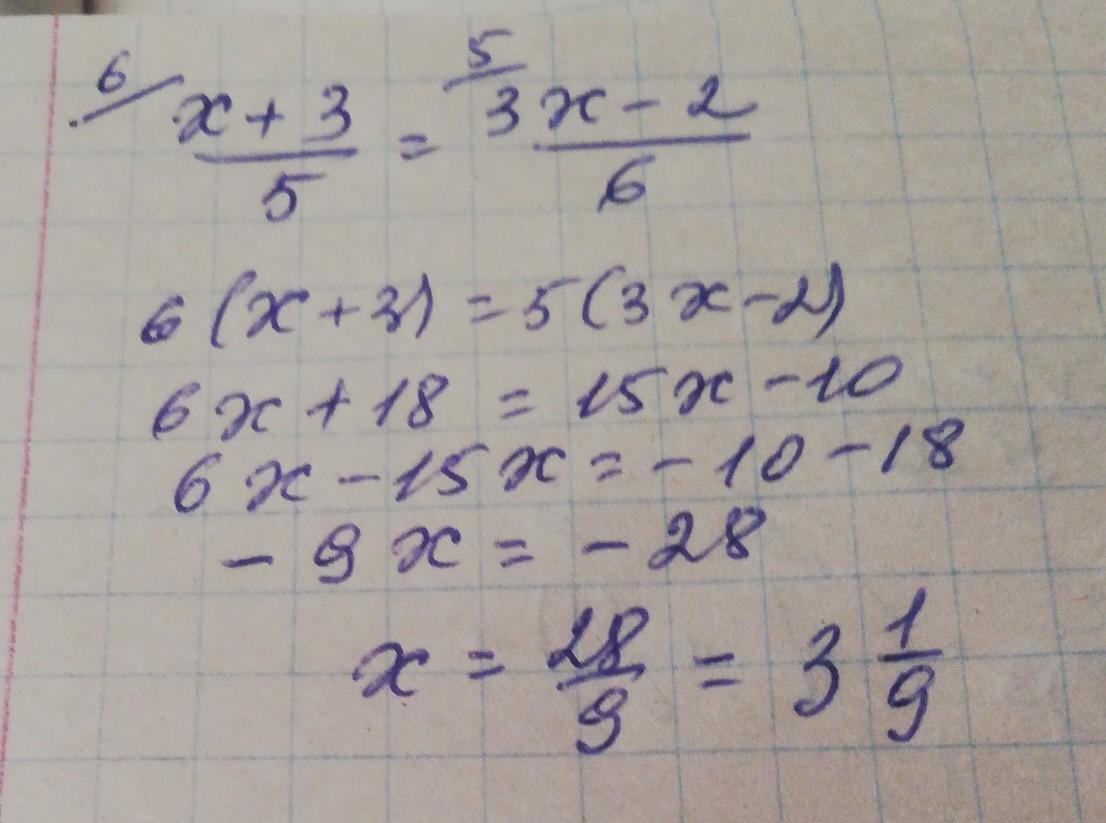 6/ x + 3 / 5 = 5/ 3x - 2 / 6
6 (x + 3) = 5 (3x - 2)
6x + 18 = 15x - 10
6x - 15x = - 10 - 18
- 9x = - 28
x = 28/9 = 3 1/9